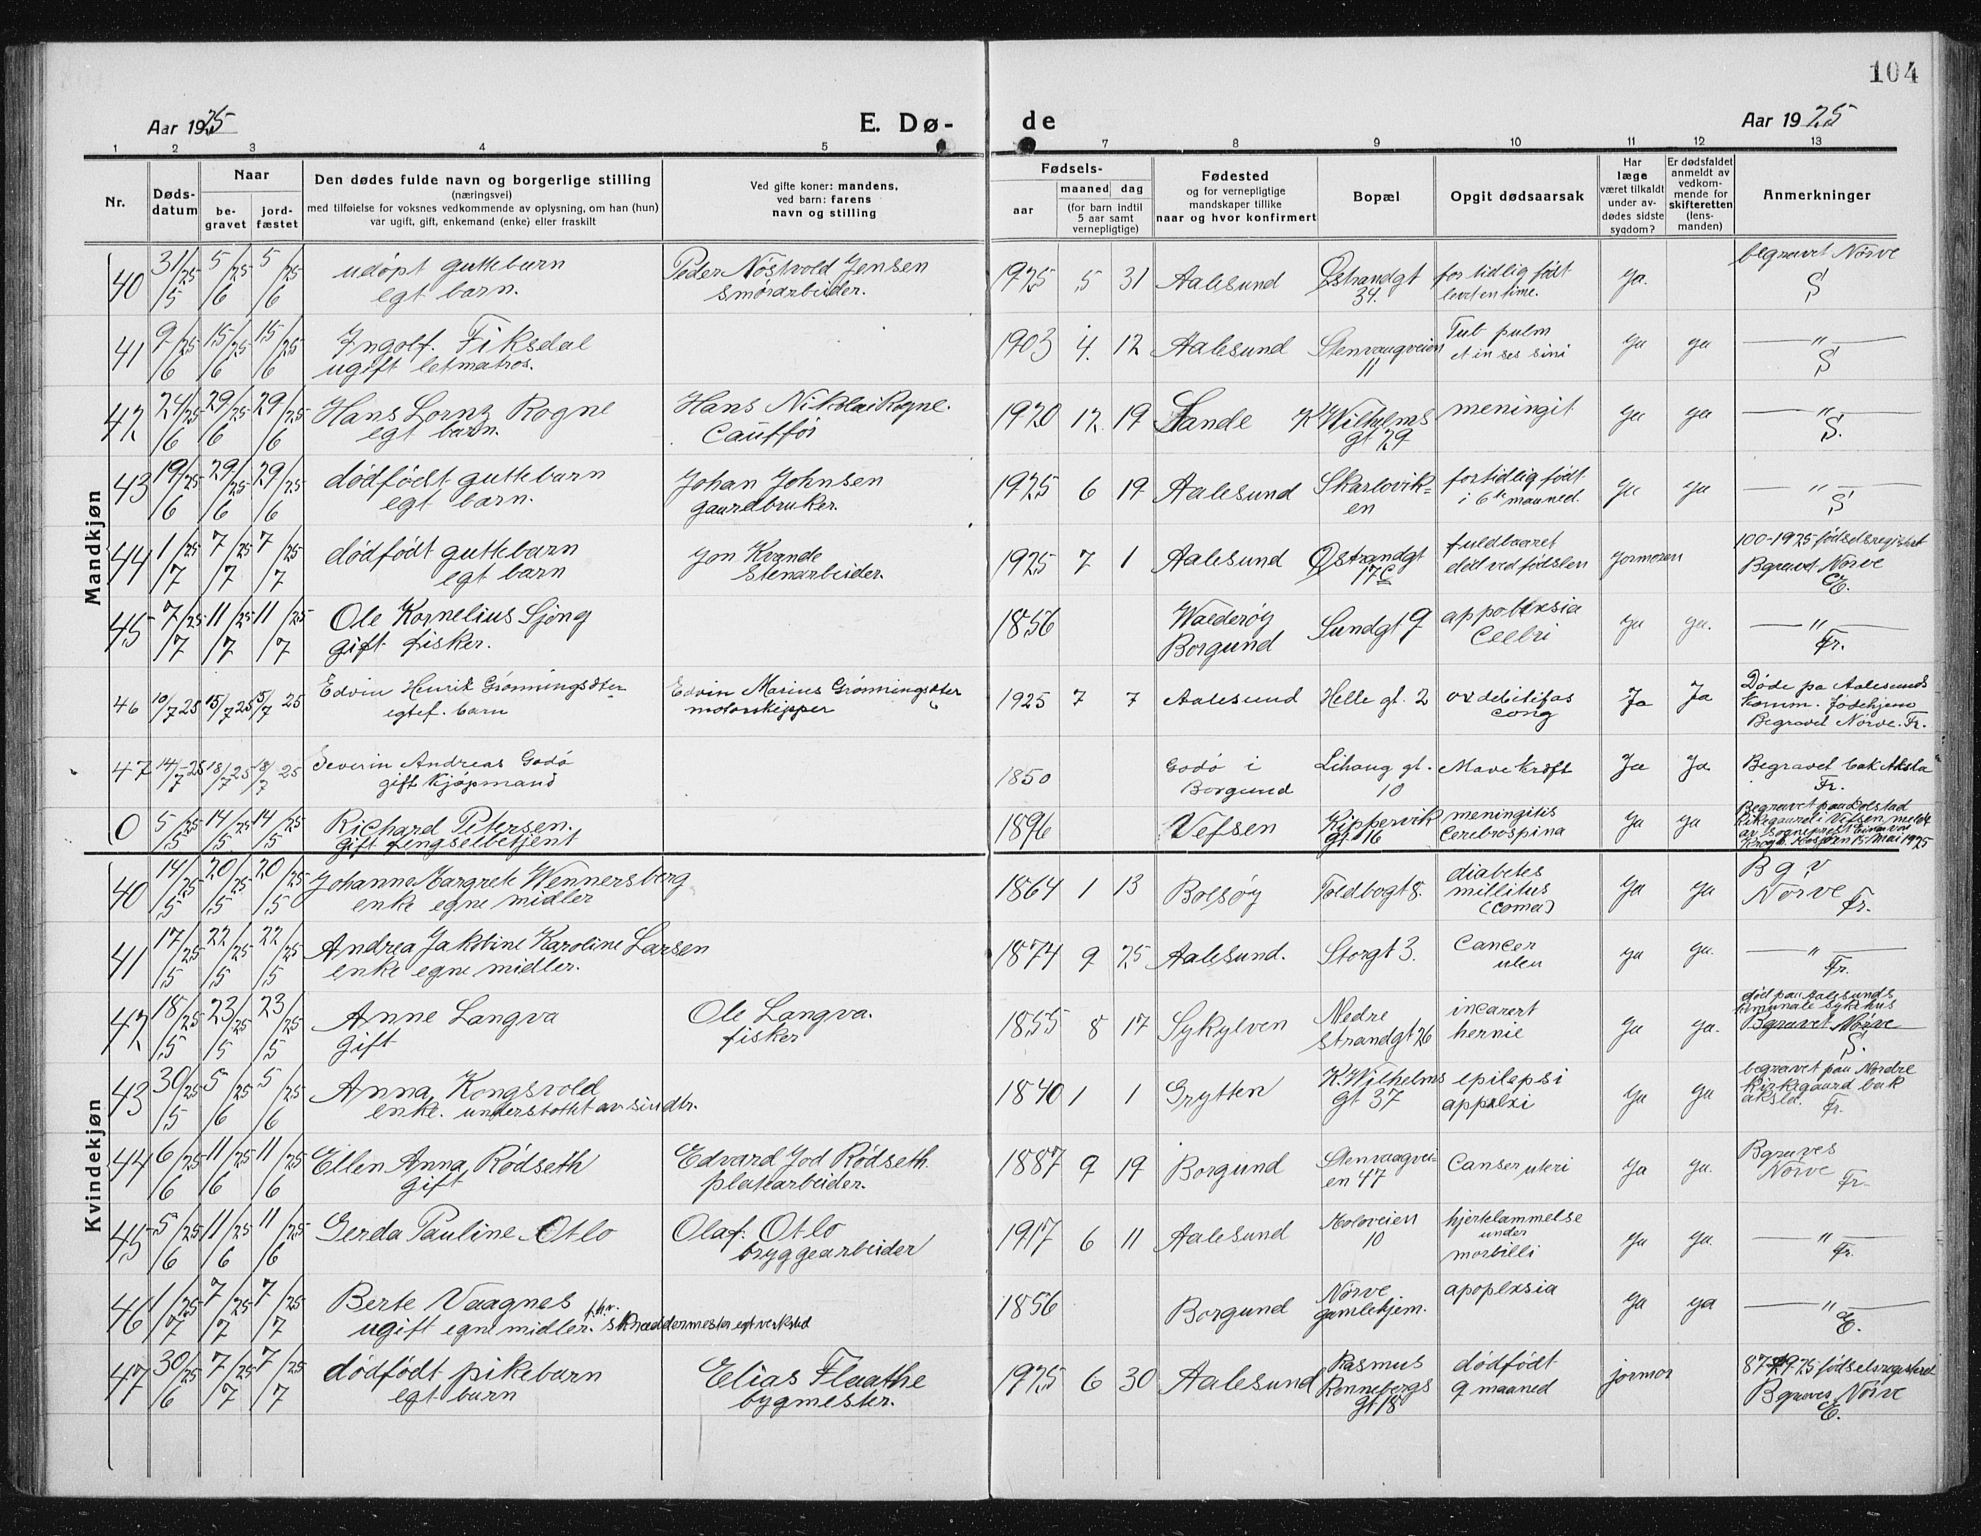 104
Aar 1925
E. Dø-
de
Aar 1925
1 2 3 4 5 7 8 9 10 11 12 13
Nr.
Døds-
datum
Naar
be-
gravet
jord-
fæstet
Den dødes fulde navn og borgerlige stilling
(næringsvei)
med tilføielse for voksnes vedkommende av oplysning, om han (hun)
var ugift, gift, enkemand (enke) eller fraskilt
Ved gifte koner: mandens,
ved barn: farens
navn og stilling
Fødsels-
aar
maaned dag
(for barn indtil
5 aar samt
vernepligtige)
Fødested
og for vernepligtige
mandskaper tillike
naar og hvor konfirmert
Bopæl
Opgit dødsaarsak
Har
læge
været tilkaldt
under av-
dødes sidste
sygdom?
Er dødsfaldet
anmeldt av
vedkom-
mende for
skifteretten
(lens-
manden)
Anmerkninger
Mandkjøn
40 31/5 25 5/6 25 5/6 25 udøpt guttebarn Peder Nostvold Jensen 1925 5 31 Aalesund Østrandgt for tidlig født Ja. begravet Nørve
egt barn. smørarbeider. 34. levet en time. S
41 9/6 25 15/6 25 15/6 25 Ingolf Fiksdal 1903 4. 12 Aalesund Stenvaagveien Tub pulm Ja ja — " —
ugift letmatros. 11 S
42 24/6 25 29/6 25 29/6 25 Hans Lornz Rogne Hans Nikolai Rogne. 1920 12. 19 Sande K Wilhelms meningit Ja ja — " —
egt barn. Cauffør gt 29 S.
43 19/6 25 29/6 25 29/6 25 dødfødt guttebarn Johan Johnsen 1925 6 19 Aalesund Skarlovik= for tidlig født Ja ja — " —
egt barn. gaardbruker. en i 6te maaned. S
44 1/7 25 7/7 25 7/7 25 dødfødt guttebarn Jon Kvande 1925 7 1 Aalesund Østrandgt fuldbaaret Jormoren 100-1925 fødselsregistret
egt barn Stenarbeider. 17c død ved fødslen Bgravet Nørve
E.
45 7/7 25 11/7 25 11/7 25 Ole Kornelius Sjong 1856 Walderøy Sundgt 9 appoblexsia Ja ja. — " —
gift fisker. Borgund Celbri Fr.
46 10/7 25 15/7 25 15/7 25 Edvin Henrik Grønningsæter Edvin Marius Grønningsæter 1925 7 7 Aalesund Helle gt. 2 ox debilitas Ja Ja Døde pa Aalesunds
egtef. barn motorskipper cong Komm. fødehjem
Begravet Nørve. Fr.
47 14/7-25 18/7 25 18/7 25 Severin Andreas Godø 1850 Godø i Lihaug gt. Mavekræft Ja Ja Begravet bak Aksla
gift kjøpmand Borgund 10 Fr.
0 5/5 25 14/5 25 14/5 25 Richard Petersen. 1896 Vefsen Kippervik meningitis Ja ja Begravet paa Dolstad
gift fengselbetjent gt 16 Cerebrospina Kirkegaard i Vefsen, meldt
av sogneprest Einar von
Krogh. Mosjøen 15 Mai 1925
Kvindekjøn
40 14/5 25 20/5 25 20/5 25 Johanne Margrete Wennersberg 1864 1 13 Bolsøy Toldbogt 8. diabetes Ja ja Bgv
enke egne midler millitus Nørve
(coma) Fr.
41 17/5 25 22/5 25 22/5 25 Andrea Jakobine Karoline Larsen 1874 9 25 Aalesund. Storgt 3. Cancer ja ja. — " —
enke egne midler. Fr.
42 18/5 25 23/5 25 23/5 25 Anne Langva Ole Langva. 1855 8 17 Sykylven Nedre incarert Ja ja. død paa Aalesunds
gift fisker strandgt 26 hernie Komunale sykehus
Bgravet Nørve
S.
43 30/5 25 5/6 25 5/6 25 Anna Kongsvold 1840 1 1 Grytten K. Wilhelms epilepsi Ja ja begravet paa Nordre
enke. understøttet av sin dtr. gt 37 appolexi Kirkegaard bak
aksla. Fr.
44 6/6 25 11/6 25 11/6 25 Ellen Anna Rødseth Edvard Jod Rødseth. 1887 9 19 Borgund Stenvaagvei- Canser uteri Ja ja. Bgraves
gift platearbeider. en 47 Nørve
Fr.
45 5/6 25 11/6 25 11/6 25 Gerda Pauline Otlo Olaf Otlo 1917 6 11 Aalesund Moloveien hjertelammelse Ja ja. — " —
bryggearbeider 10 under Fr.
morbilli
46 1/7 25 7/7 25 7/7 25 Berte Vaagnes 1856 Borgund Nørve apoplexsia Ja ja — " —
ugift egne midler. fhv. skræddermester egt verksted gamlehjem. E.
47 30/6 25 7/7 25 7/7 25 dødfødt pikebarn Elias Flaathe 1925 6 30 Aalesund Rasmus dødfødt jormor 87-1925 fødselsregistret
egt barn bygmester. Rønnebergs 9 maaned Bgraves Nørve
gt 18 E.